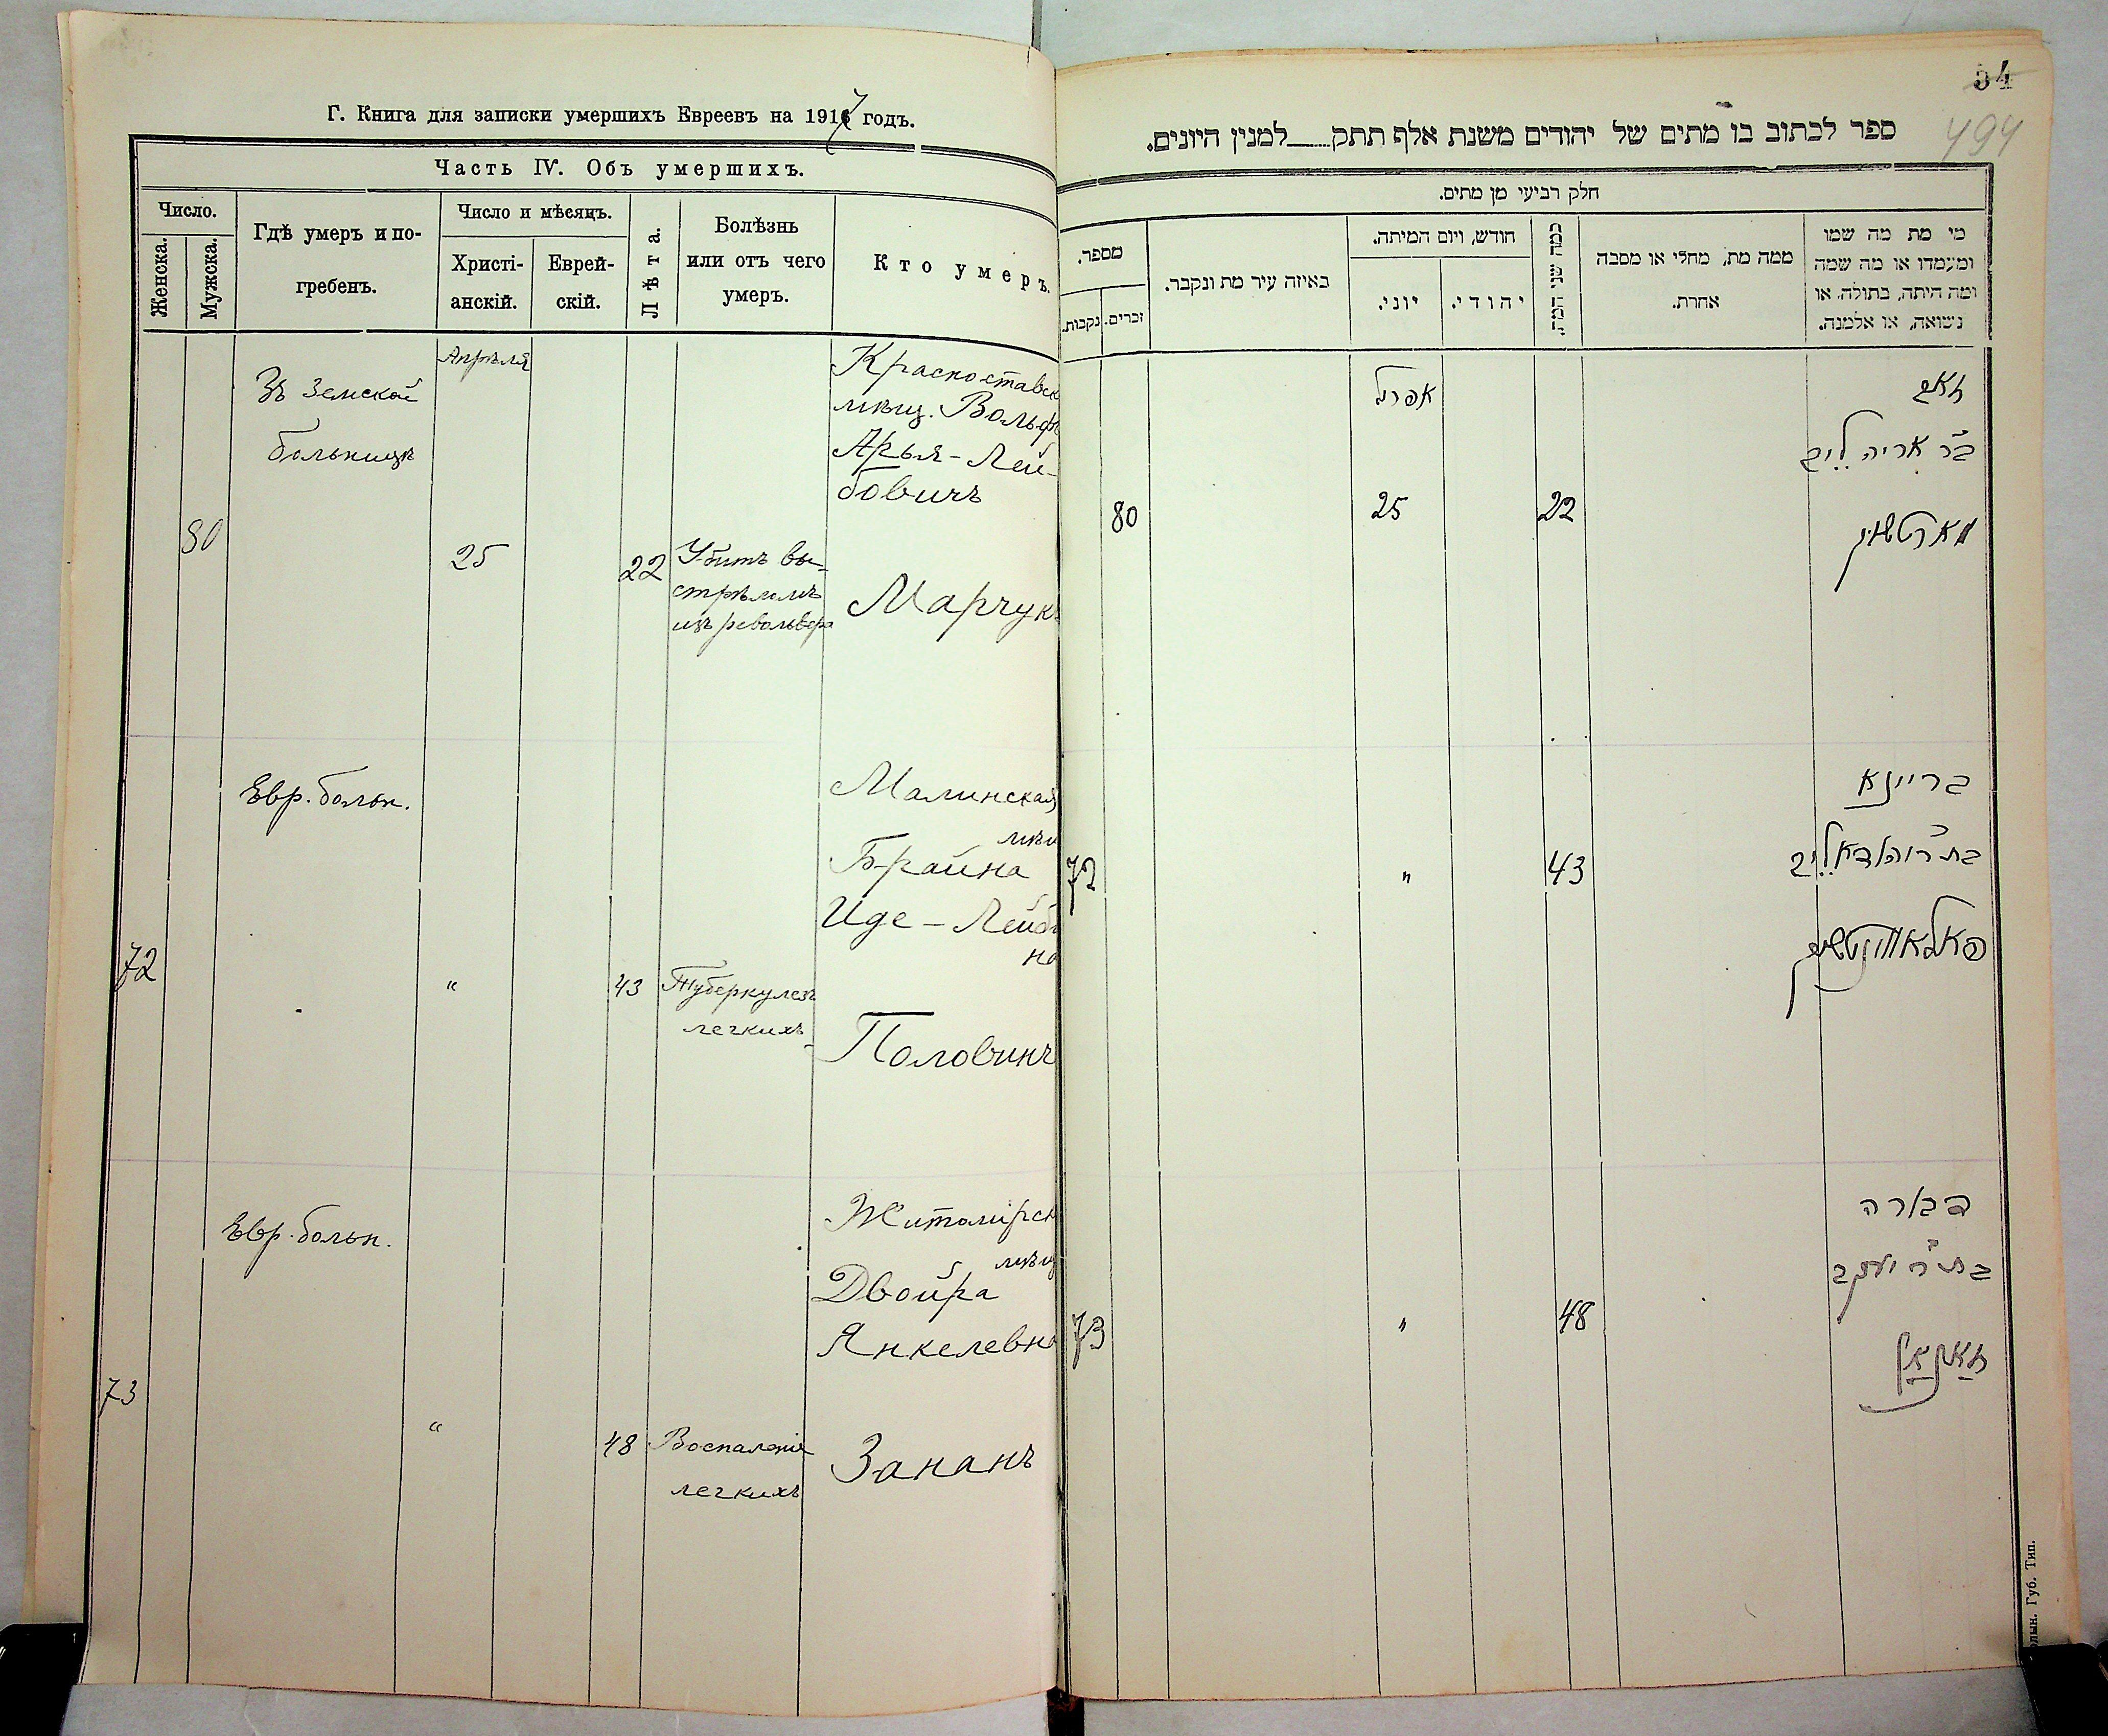 Г. Книга для записки умершихъ Евреевъ на 1917 годъ.
Часть IV. Объ умершихъ.
Число.
Женска.
Мужска.
Гдѣ умеръ и по-
гребенъ.
Число и мѣсяцъ.
Христі-
анскій.
Еврей-
скій.
Лѣта.
Болѣзнь
или отъ чего
умеръ.
Кто умеръ.
Въ Земской
больницѣ
Апрѣля
80
25
22
Убитъ вы-
стрѣломъ
изъ револьвера
Красноставск
мѣщ. Вольфъ
Арья-Лей-
бовичъ
Марчукъ
Евр. больн.
72
"
43
Туберкулезъ
легкихъ
Малинская
мѣщ
Брайна
Иде-Лейбов
на
Половинч
Евр. больн.
73
"
48
Воспаленіе
легкихъ
Житомірск
мѣщ
Двойра
Янкелевна
Зананъ
54
494
ספר לכתוב בו מתים של יהודים משנת אלף תתק___למנין היונים.
חלק רביעי מן מתים.
מספר.
נקבות.
זכרים.
באיזה עיר מת ונקבר.
חודש, ויום המיתה.
יוני.
יהודי.
כמה שני המת.
ממה מת, מחלי או מסבה
אחרת.
מי מת מה שמו
ומעמדו או מה שמה
ומה היתה, בתולה, או
נשואה, או אלמנה.
אפריל
80
25
22
בר אריה לייב
מארטשוק
72
"
43
בריינא
73
"
48
דבורה
בת ר יעקב
Волын. Губ. Тип.